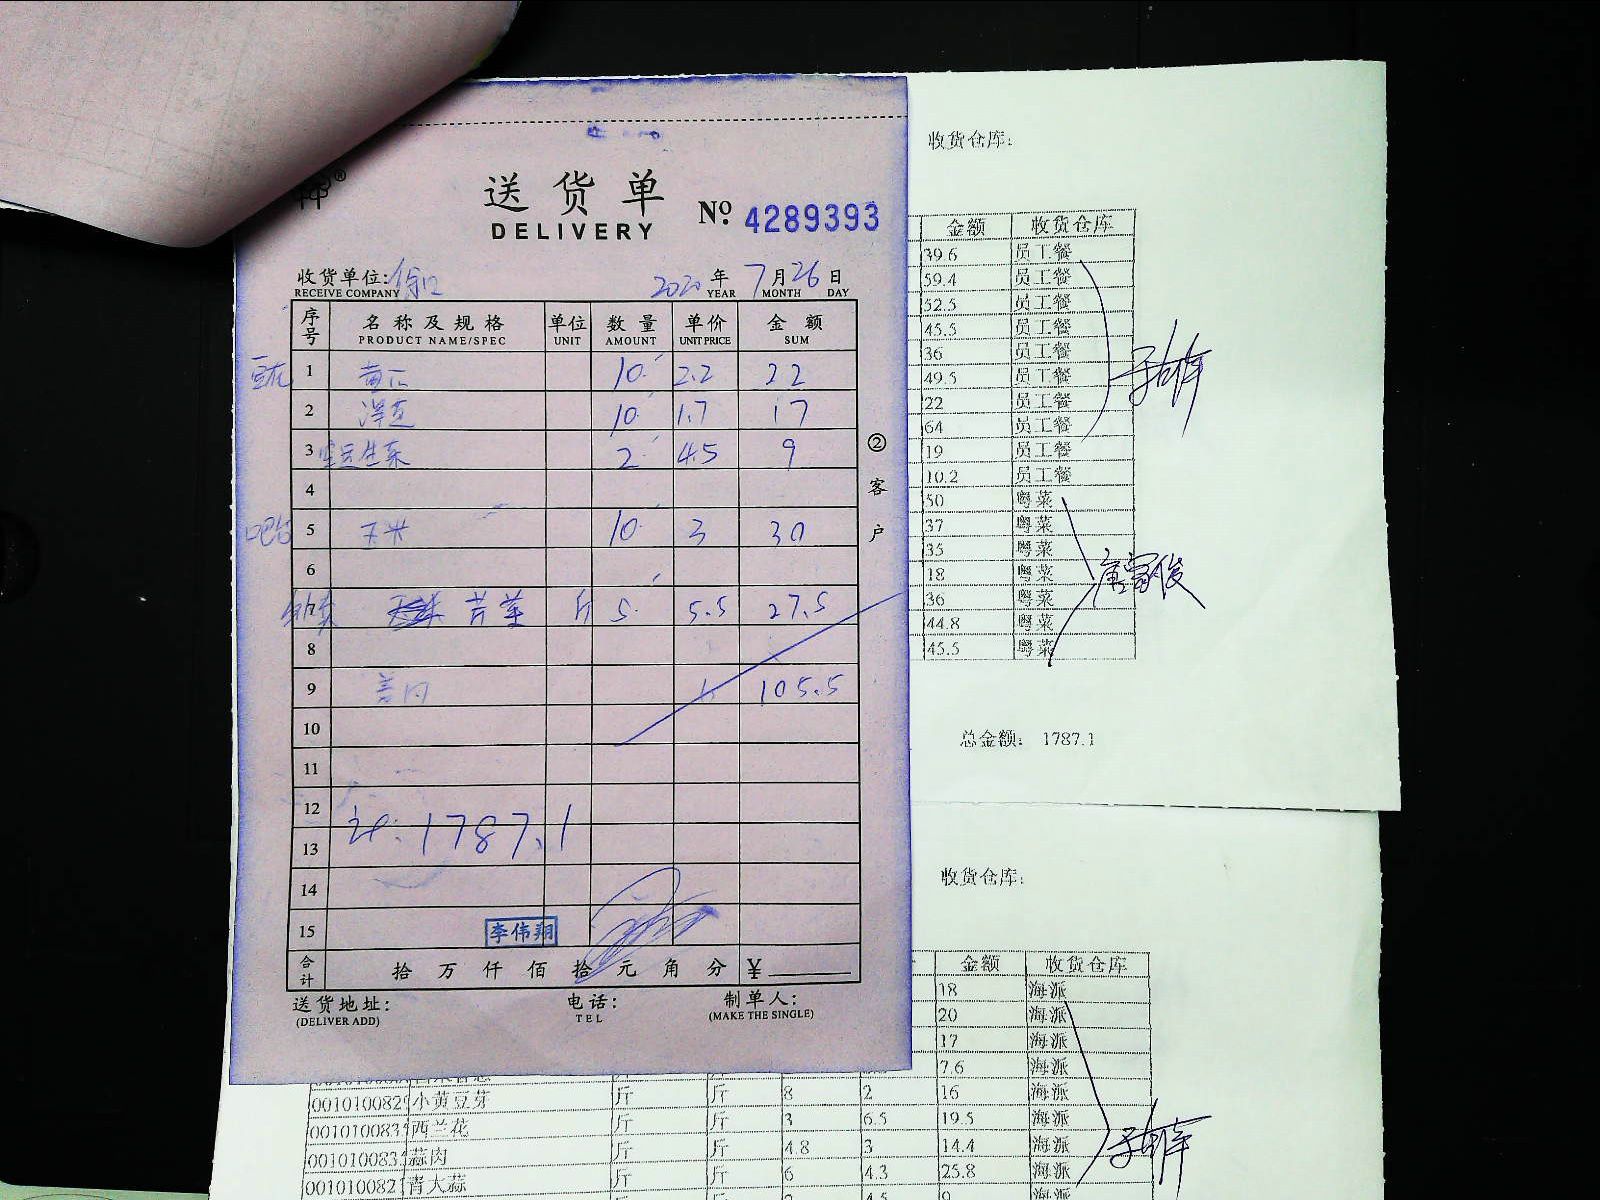 送货单
DELIVERY
№ 4289393
收货单位: 2020年7月26日
RECEIVE COMPANY YEAR MONTH DAY
序号 名称及规格 单位 数量 单价 金额
PRODUCT NAME/SPEC UNIT AMOUNT UNIT PRICE SUM
1 黄瓜 10 2.2 22
2 洋芝 10 1.7 17
3 生菜 2 4.5 9
4
吧台 5 玉米 10 3 30
6
7 芹菜 斤 5 5.5 27.5
8
9 105.5
10
11
12
计: 1787.1
13
14
15 李伟翔
合计 拾万仟佰拾元角分 ¥
送货地址: 电话: 制单人:
(DELIVER ADD) TEL (MAKE THE SINGLE)
②客户
收货仓库:
金额 收货仓库
39.6 员工餐
59.4 员工餐
52.5 员工餐
45.5 员工餐
36 员工餐
49.5 员工餐
22 员工餐
64 员工餐
19 员工餐
10.2 员工餐
50 粤菜
37 粤菜
35 粤菜
18 粤菜
36 粤菜
44.8 粤菜
45.5 粤菜
唐富俊
总金额: 1787.1
收货仓库:
金额 收货仓库
18 海派
20 海派
17 海派
7.6 海派
001010082 小黄豆芽 斤 斤 8 2 16 海派
001010083 西兰花 斤 斤 3 6.5 19.5 海派
001010083 蒜肉 斤 斤 4.8 3 14.4 海派
001010082 青大蒜 斤 斤 6 4.3 25.8 海派
4.5 9 海派